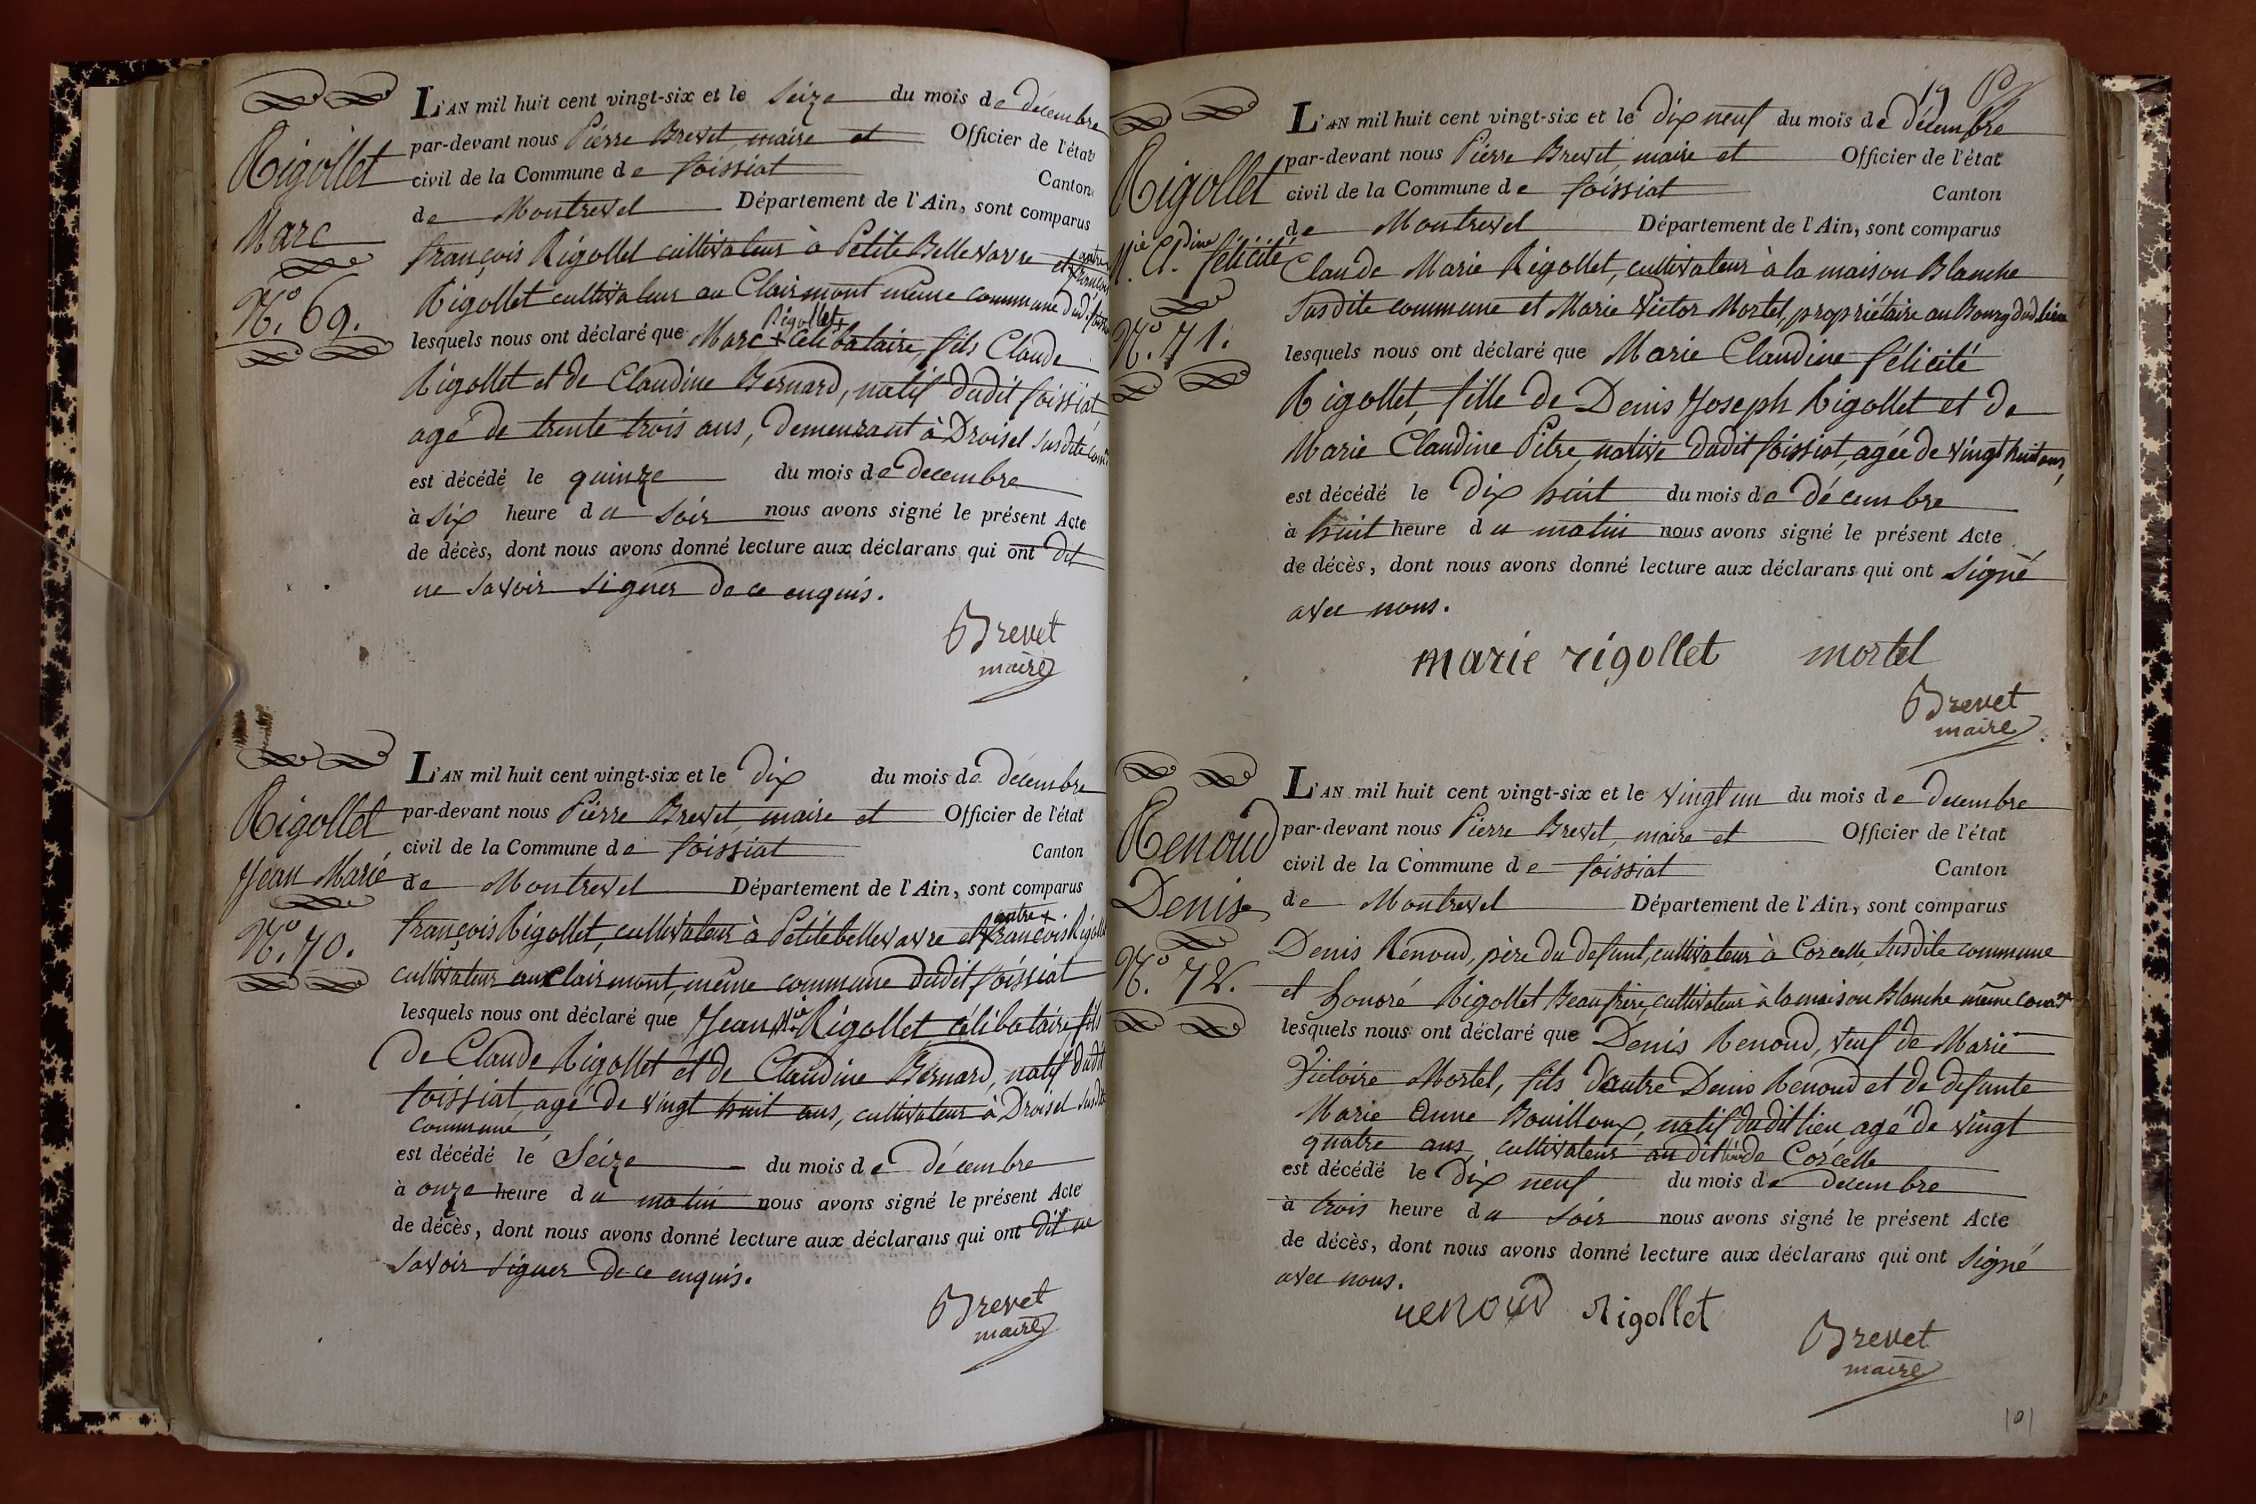 Rigollet
Marc
N.º 69.
L'AN mil huit cent vingt-six et le Seize du mois de décembre
par-devant nous Pierre Brevet, maire et Officier de l'état
civil de la Commune de foissiat Canton
de Montrevel Département de l'Ain, sont comparus
françois Rigollet cultivateur à Petite Bellevavre et autre françois
Rigollet cultivateur au Clairmont même commune dud. foissiat
lesquels nous ont déclaré que Marc + Rigollet + célibataire, fils Claude
Rigollet et de Claudine Bernard, natif dudit foissiat
agé de trente trois ans, demeurant à Droisel susdite com
est décédé le quinze du mois de decembre
à six heure du soir nous avons signé le présent Acte
de décès, dont nous avons donné lecture aux déclarans qui ont dit
ne savoir signer de ce enquis.
Brevet
maire
Rigollet
Jean Marie
N.º 70.
L'AN mil huit cent vingt-six et le dix du mois de décembre
par-devant nous Pierre Brevet, maire et Officier de l'état
civil de la Commune de foissiat Canton
de Montrevel Département de l'Ain, sont comparus
françois Rigollet, cultivateur à Petitebellevavre et autre + françois Rigollet
cultivateur au clairmont, même commune dudit foissiat
lesquels nous ont déclaré que Jean M.ie Rigollet célibataire fils
de Claude Rigollet et de Claudine Bernard, natif dudit
foissiat, agé de vingt huit ans, cultivateur à Droisel susdite
commune,
est décédé le Seize du mois de décembre
à onze heure du matin nous avons signé le présent Acte
de décès, dont nous avons donné lecture aux déclarans qui ont dit ne
savoir signer de ce enquis.
Brevet
maire
19
Rigollet
M.ie Cl.dine félicité
N.º 71.
L'AN mil huit cent vingt-six et le dix neuf du mois de décembre
par-devant nous Pierre Brevet, maire et Officier de l'état
civil de la Commune de foissiat Canton
de Montrevel Département de l'Ain, sont comparus
Claude Marie Rigollet, cultivateur à la maison Blanche
susdite commune et Marie Victor Mortel, propriétaire au Bourg dud. lieu
lesquels nous ont déclaré que Marie Claudine félicité
Rigollet, fille de Denis Joseph Rigollet et de
Marie Claudine Pitre, native dudit foissiat, agée de vingt huit ans,
est décédé le dix huit du mois de décembre
à huit heure du matin nous avons signé le présent Acte
de décès, dont nous avons donné lecture aux déclarans qui ont signé
avec nous.
marie rigollet mortel
Brevet
maire
Renoud
Denis
N.º 72.
L'AN mil huit cent vingt-six et le vingt un du mois de decembre
par-devant nous Pierre Brevet, maire et Officier de l'état
civil de la Commune de foissiat Canton
de Montrevel Département de l'Ain, sont comparus
Denis Renoud, père du defunt, cultivateur à Corcelle, susdite commune
et honoré Rigollet Beaufrère, cultivateur à la maison Blanche même
lesquels nous ont déclaré que Denis Renoud, veuf de Marie
Victoire Mortel, fils d'autre Denis Renoud et de defunte
Marie Anne Bouilloux, natif dudit lieu agé de vingt
quatre ans, cultivateur audit lieu de Corcelle
est décédé le dix neuf du mois de decembre
à trois heure du soir nous avons signé le présent Acte
de décès, dont nous avons donné lecture aux déclarans qui ont signé
avec nous.
renoud Rigollet
Brevet
maire
101